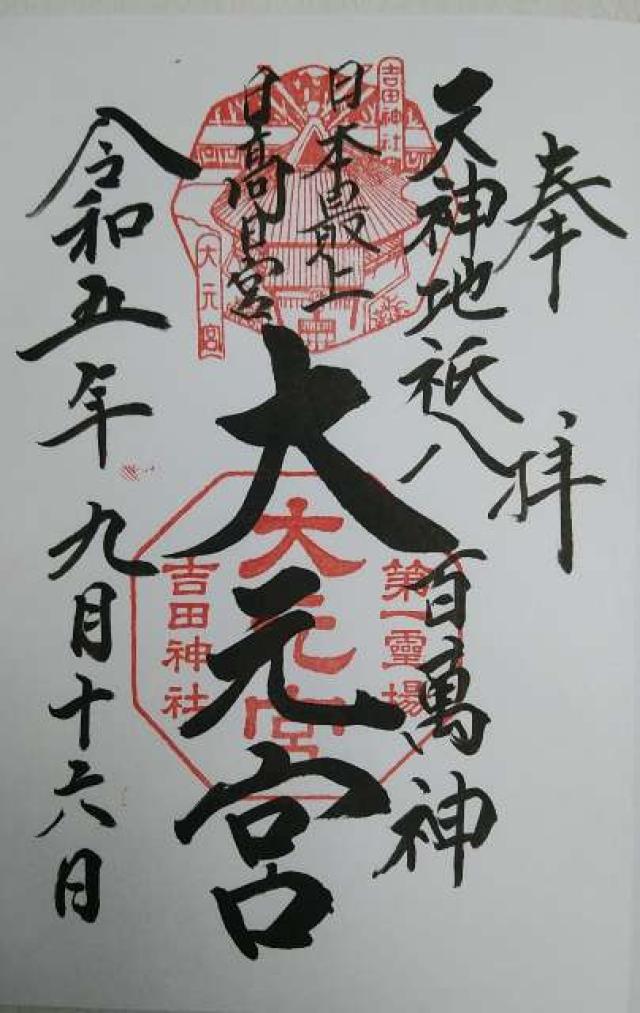 奉拝
天神地祇八百萬神
日本最上
日高日宮
大元宮
令和五年九月十六日
吉田神社
大元宮
第一靈場
大元宮
吉田神社